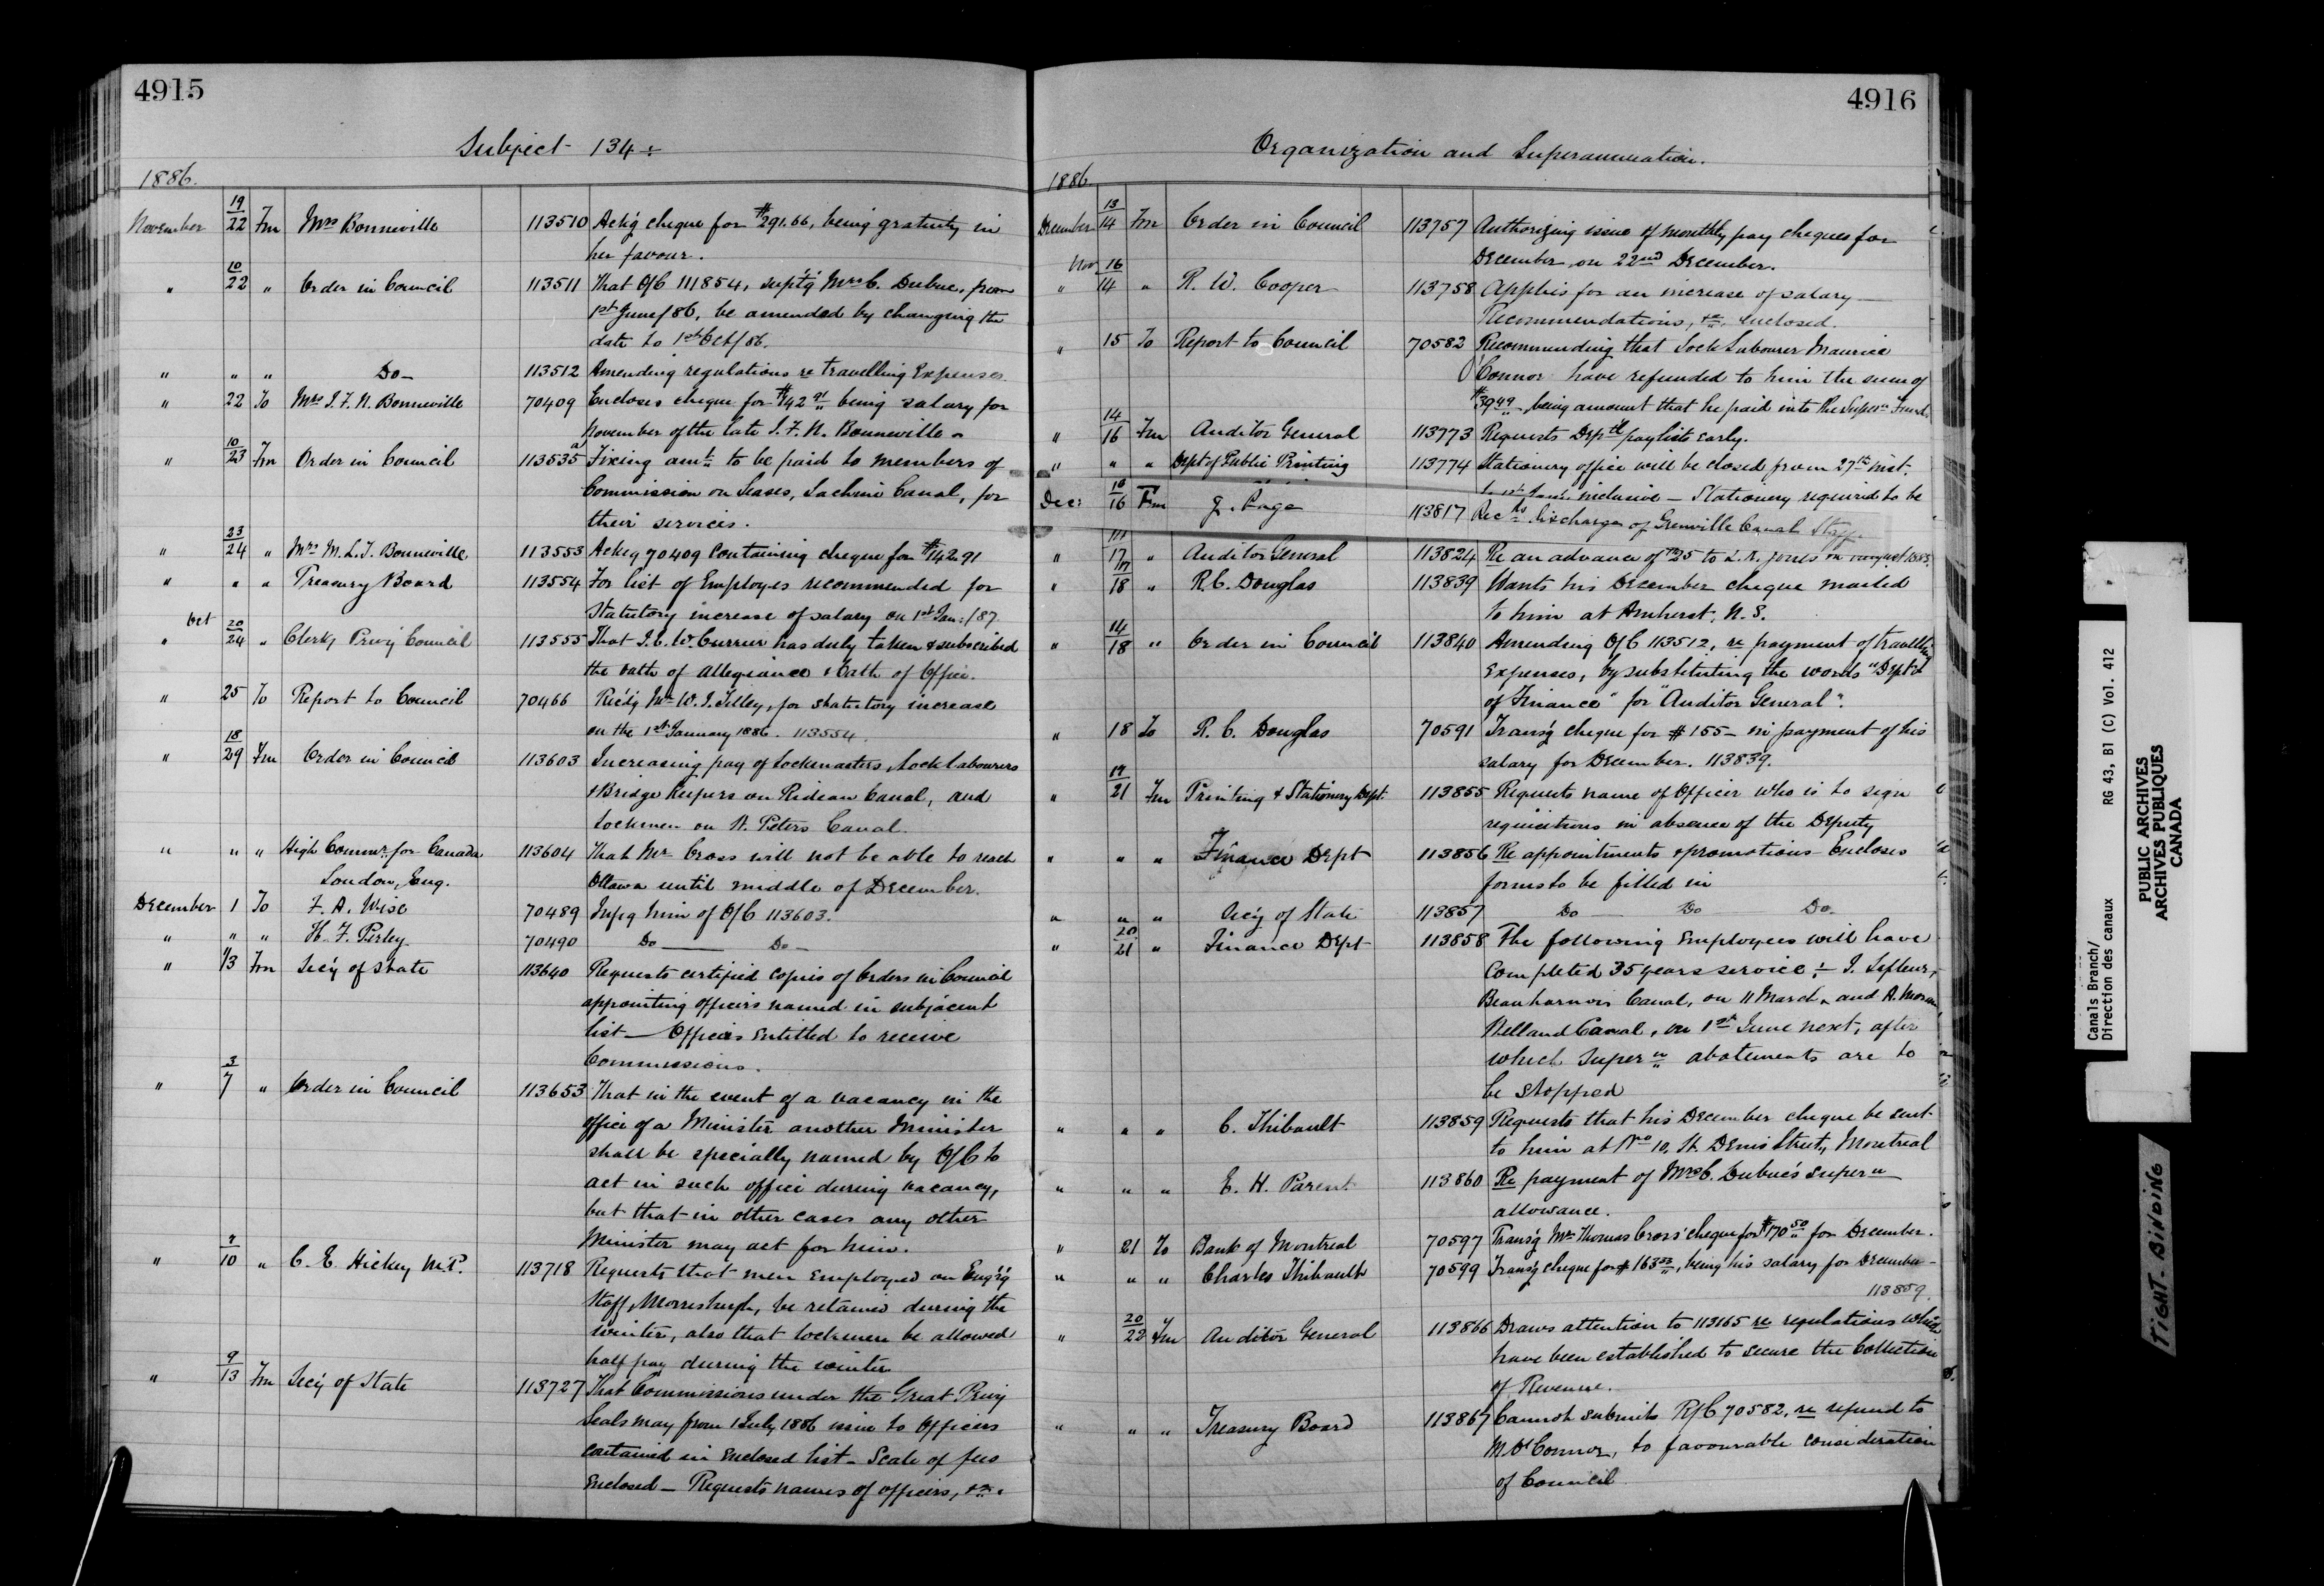 4915
Subject 134 :
1886.
November 19/22 Fm Mrs Bonneville 113510 Ack'g cheque for $291.66, being gratuity in
her favour.
" 10/22 " Order in Council 113511 That O/C 111854, supt'g Mrs C. Dubuc, from
1st June/86, be amended by changing the
date to 1st Oct/86.
" " " Do 113512 Amending regulations re travelling Expenses
" 22 To Mrs J. F. N. Bonneville 70409 Encloses cheque for $142 91 being salary for
November of the late J. F. N. Bonneville
" 10/23 Fm Order in Council 113535a Fixing amt to be paid to members of
Commission on Leases, Lachine Canal, for
their services.
" 23/24 " Mrs M. L. J. Bonneville 113553 Ackg 70409 containing cheque for $142.91
" " " Treasury Board 113554 For list of Employes recommended for
Statutory increase of salary on 1st Jan:/87.
" Oct 20/24 " Clerk, Privy Council 113555 That J. C. W. Currier has duly taken & subscribed
the oath of allegiance & Oath of Office.
" 25 To Report to Council 70466 Rec'd'g Mr W. J. Tilley, for statutory increase
on the 1st January 1886. 113554.
" 18/29 Fm Order in Council 113603 Increasing pay of Lockmasters, Lock Labourers
& Bridge Keepers on Rideau Canal, and
Lockmen on St. Peters Canal.
" " " High Commr. for Canada 113604 That Mr Cross will not be able to reach
London, Eng. Ottawa until middle of December.
December 1 To F. A. Wise 70489 Infg him of O/C 113603.
" " " H. F. Perley 70490 Do Do
" 1/3 Fm Sec'y of State 113640 Requests certified copies of Orders in Council
appointing officers named in subjacent
list — Officers entitled to receive
Commissions.
" 3/7 " Order in Council 113653 That in the event of a vacancy in the
office of a Minister another Minister
shall be specially named by O/C to
act in such office during vacancy,
but that in other cases any other
Minister may act for him.
" 9/10 " C. E. Hickey M.P. 113718 Requests that men employed on Eng'r'g
Staff, Morrisburgh, be retained during the
winter, also that lockmen be allowed
half pay during the winter
" 9/13 Fm Sec'y of State 113727 That Commissions under the Great Privy
Seals may from 1 July 1886 issue to Officers
contained in enclosed list — Scale of fees
Enclosed — Requests names of officers, &c.
4916
Organization and Superannuation.
1886
December 13/14 Fm Order in Council 113757 Authorizing issue of monthly pay cheques for
December, on 22nd December.
" Nov 16/14 " R. W. Cooper 113758 Applies for an increase of salary —
Recommendations, &c, enclosed.
" 15 To Report to Council 70582 Recommending that Lock Labourer Maurice
O'Connor have refunded to him the sum of
$39 49, being amount that he paid into the Super'n Fund.
" 14/16 Fm Auditor General 113773 Requests Dep'tl paylists early.
" " " Dept of Public Printing 113774 Stationery office will be closed from 27th inst.
inclusive — Stationery required to be
Dec: 10/16 Fm J. Page 113817 Rec'ds discharge of Grenville Canal Staff
" 17 " Auditor General 113824 Re an advance of $25 to L. K. Jones in August/1885.
" 17/18 " R. C. Douglas 113839 Wants his December cheque mailed
to him at Amherst, N. S.
" 14/18 " Order in Council 113840 Amending O/C 113512, re payment of travelling
Expenses, by substituting the words "Dept
of Finance" for "Auditor General".
" 18 To R. C. Douglas 70591 Trans'g cheque for $155 — in payment of his
salary for December. 113839.
" 19/21 Fm Printing & Stationery Dept. 113855 Requests name of Officer who is to sign
requisitions in absence of the Deputy
" " " Finance Dept 113856 Re appointments & promotions — Encloses
forms to be filled in
" " " Sec'y of State 113857 Do Do Do
" 20/21 " Finance Dept 113858 The following employees will have
completed 35 years service :— J. Lefleur,
Beauharnois Canal, on 11 March, and A. Moran
Welland Canal, on 1st June next, after
which Super'n abatements are to
be stopped
" " " C. Thibault 113859 Requests that his December cheque be sent
to him at No 10, St. Denis Street, Montreal
" " " E. H. Parent 113860 Re payment of Mrs C. Dubuc's super'n
allowance.
" 21 To Bank of Montreal 70597 Trans'g Mr Thomas Cross' cheque for $170 50 for December.
" " " Charles Thibault 70599 Trans'g cheque for $163 33, being his salary for December —
113859.
" 20/22 Fm Auditor General 113866 Draws attention to 113165 re regulations which
have been established to secure the Collection
of Revenue.
" " " Treasury Board 113867 Cannot submit R/C 70582, re refund to
M. O'Connor, to favourable consideration
of Council
Canals Branch/
Direction des canaux
RG 43, B1 (C) Vol. 412
PUBLIC ARCHIVES
ARCHIVES PUBLIQUES
CANADA
TIGHT BINDING